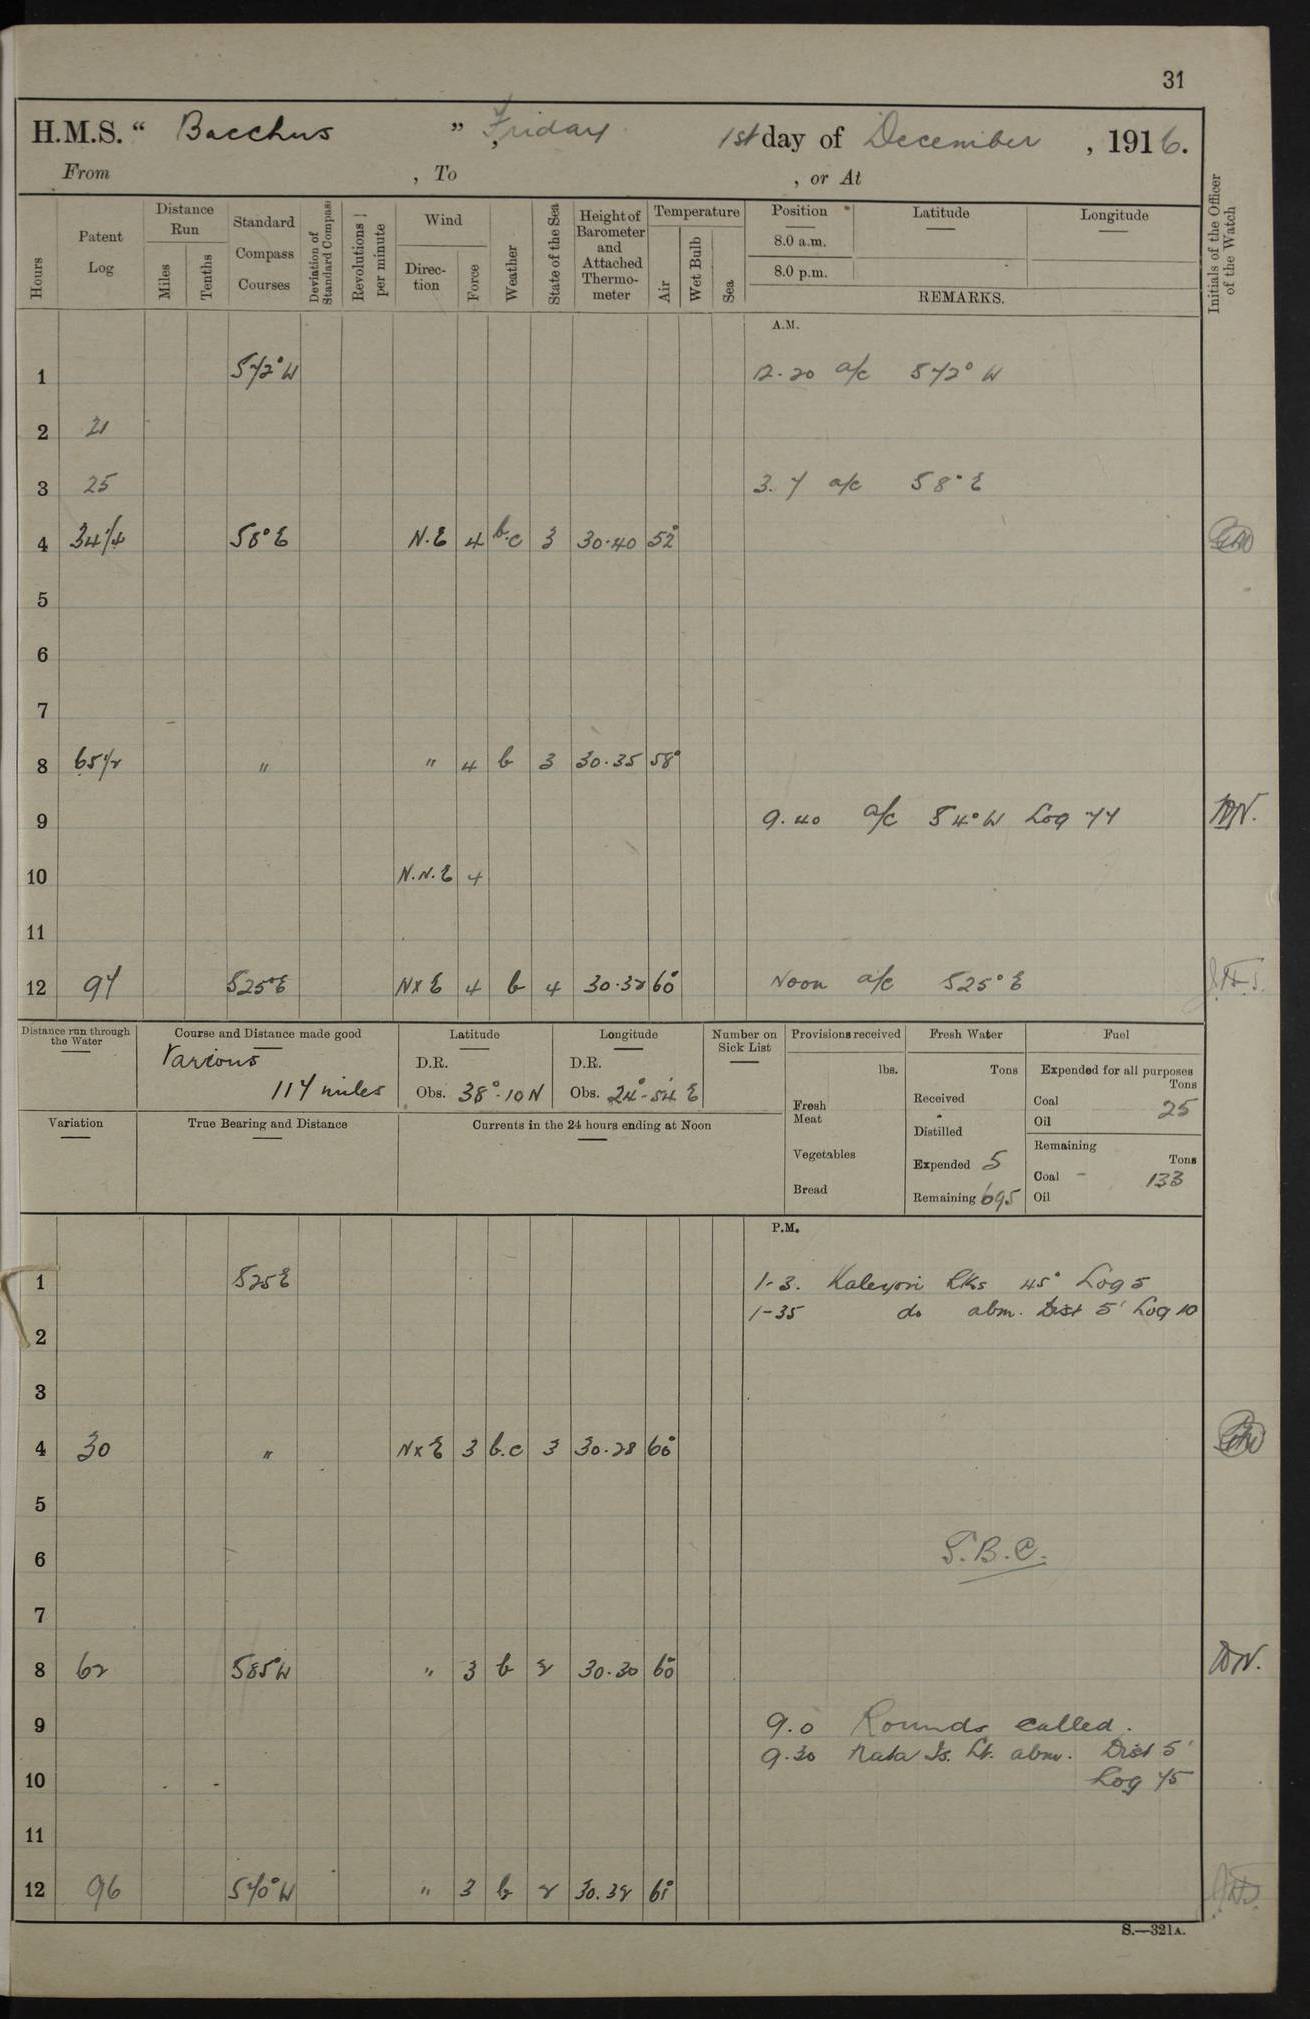 31
H.M.S. “ Bacchus ” Friday 1st day of December , 1916.
From , To , or At
Hours
Patent Log
Distance Run
Miles
Tenths
Standard Compass Courses
Deviation of Standard Compass
Revolutions per minute
Wind
Direction
Force
Weather
State of the Sea
Height of Barometer and Attached Thermometer
Temperature
Air
Wet Bulb
Sea
Position
8.0 a.m.
8.0 p.m.
Latitude
Longitude
REMARKS.
Initials of the Officer of the Watch
A.M.
1 S72°W 12.20 a/c S72°W
2 21
3 25 3.7 a/c S8°E
4 34 1/4 S8°E N.E 4 b.c 3 30.40 52°
5
6
7
8 65 1/2 " " 4 b 3 30.35 58°
9 9.40 a/c S4°W Log 77 DN.
10 N.N.E 4
11
12 97 S25°E NxE 4 b 4 30.32 60° Noon a/c S25°E
Distance run through the Water
Course and Distance made good
Various
117 miles
Latitude
D.R.
Obs. 38°.10 N
Longitude
D.R.
Obs. 24°-54 E
Number on Sick List
Provisions received
lbs.
Fresh Meat
Vegetables
Bread
Fresh Water
Tons
Received
Distilled
Expended 5
Remaining 695
Fuel
Expended for all purposes
Tons
Coal 25
Oil
Remaining
Tons
Coal - 133
Oil
Variation
True Bearing and Distance
Currents in the 24 hours ending at Noon
P.M.
1 S25E 1-3. Kaleyori Rks 45° Log 5
1-35 do abm. Dist 5' Log 10
2
3
4 30 " NxE 3 b.c 3 30.28 60°
5
6 S.B.C.
7
8 62 S85°W " 3 b 2 30.30 60° DN.
9 9.0 Rounds called.
9.30 Nata Is. Lt. abm. Dist 5'
10 Log 75
11
12 96 S70°W " 3 b 2 30.32 61°
S.—321A.